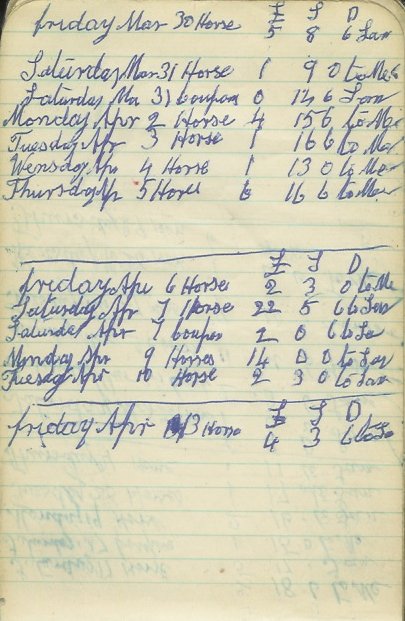 £ S D
friday Mar 30 Horse 5 8 6 Jan
Saturday Mar 31 Horse 1 9 0 to Me
Saturday Ma 31 Coupon 0 14 6 Jan
Monday Apr 2 Horse 4 15 6 to Me
Tuesday Apr 3 Horse 1 16 6 to Me
Wensday Apr 4 Horse 1 13 0 to Me
Thursday Ap 5 Horse 6 16 6 to Me
£ S D
friday Apr 6 Horse 2 3 0 to Me
Saturday Apr 7 Horse 22 5 6 to Jan
Saturda Apr 7 Coupon 2 0 6 to Ja
Monday Apr 9 Horses 14 0 0 to Jan
Tuesday Apr 10 Horse 2 3 0 to Jan
£ S D
friday Apr 13 Horse 4 3 6 to Ja